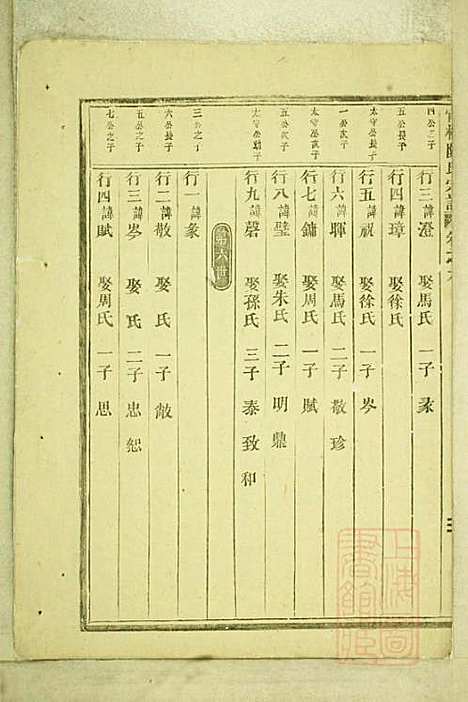 四公三子 行三諱澄 娶馬氏 一子彖
公長子 行四諱璋 娶徐氏
太守公長子 行五諱祝 娶徐氏 一子岑
一公次子 行六諱暉 娶馬氏 二子散珍
太守公次子 行七諱鏞 娶周氏 一子賦
五公次子 行八諱璧 娶朱氏 二子明鼎
太守公幼子 行九諱磬 娶孫氏 三子泰致和
第六世
三公之子 行一諱彖
六公長子 行二諱散 娶氏 一子敞
五公之子 行三諱岑 娶氏 二子忠恕
七公之子 行四諱賦 娶周氏 一子思
上海圖書館藏